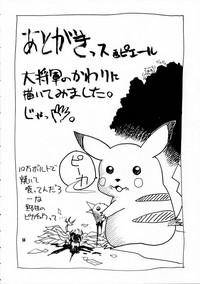 あとがきっス ピエール
大将軍のかわりに
描いてみました。
じゃっ
ピーカ
10万ボルトで
焼いて
喰ってんだろ
ーな
野生の
ピカチュウって